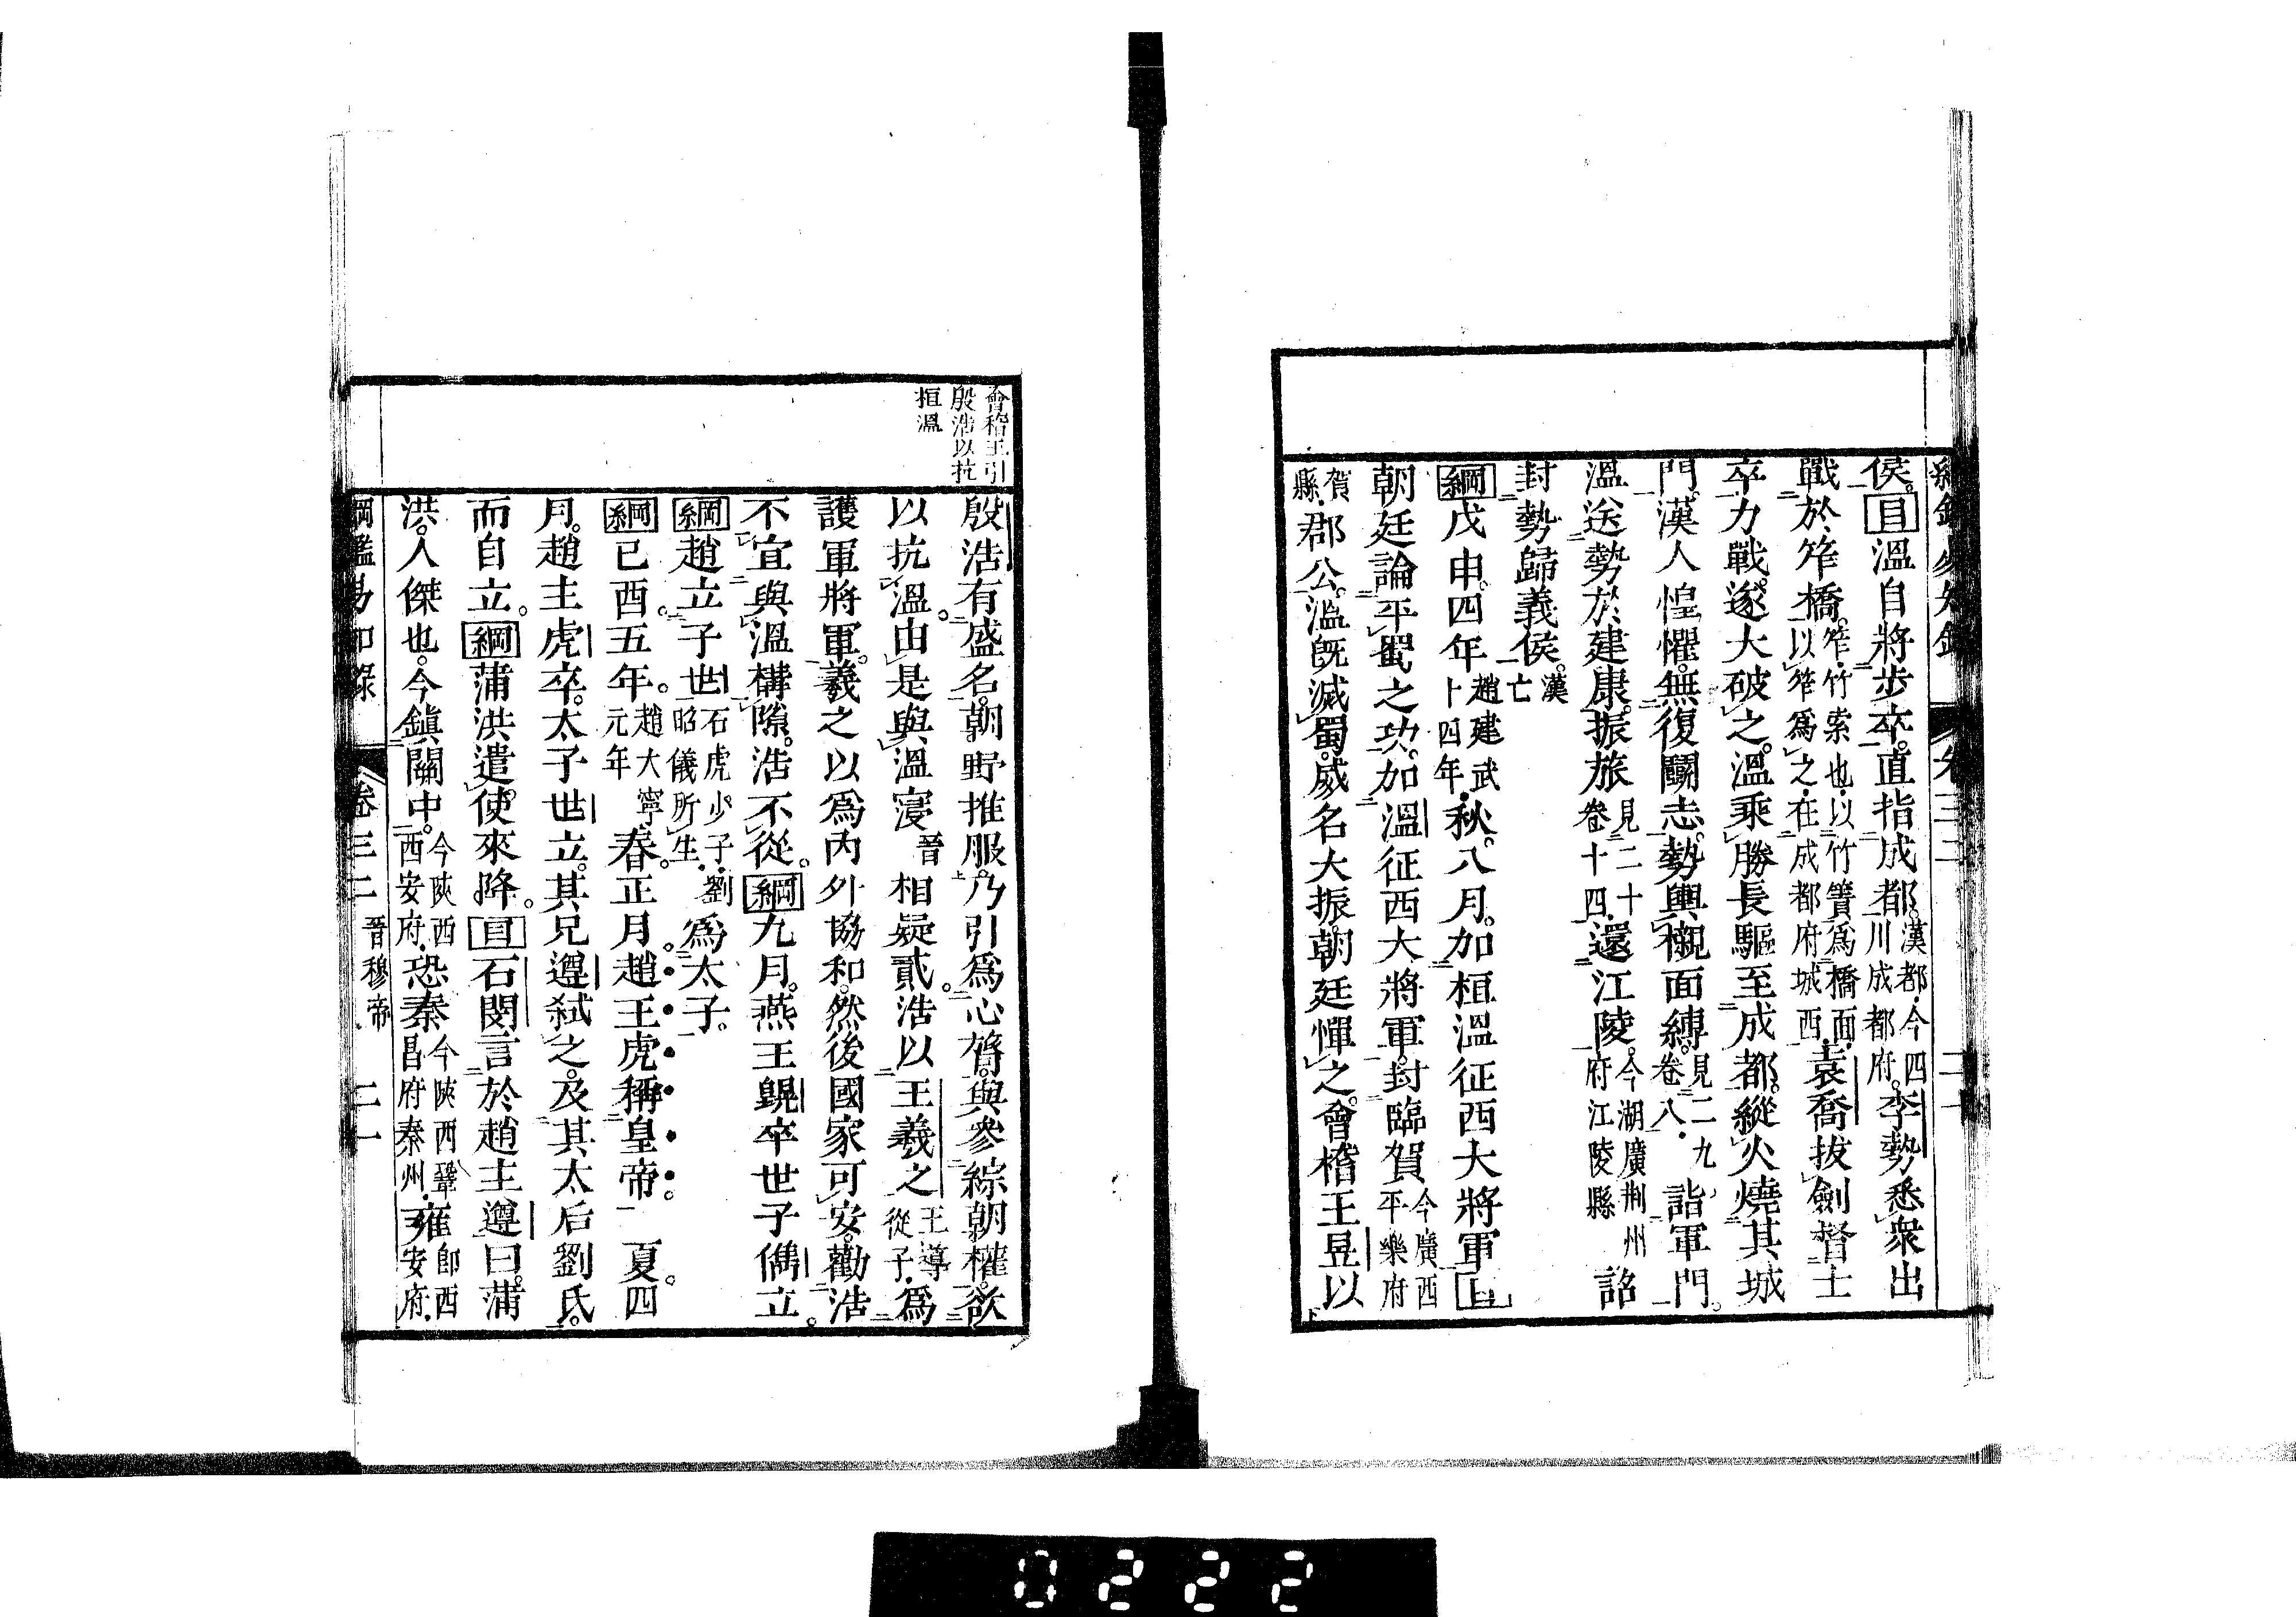 侯。目溫自將步卒。直指成都。漢都。今四川成都府。李勢悉衆出
戰於笮橋。笮。竹索也。以竹簀爲橋面。以笮爲之。在成都府城西。袁喬拔劍督士
卒力戰。遂大破之。溫乘勝長驅至成都。縱火燒其城
門。漢人惶懼。無復鬭志。勢輿櫬面縛。見二九卷八。詣軍門。
溫送勢於建康。振旅見二十卷十四。還江陵。今湖廣荆州府江陵縣詔
封勢歸義侯。漢亡
綱戊申。四年趙建武十四年。秋。八月。加桓溫征西大將軍目
朝廷論平蜀之功。加溫征西大將軍。封臨賀今廣西平樂府
賀縣。郡公。溫既滅蜀。威名大振。朝廷憚之。會稽王昱以
會稽王引
殷浩以抗
桓溫
殷浩有盛名。朝野推服。乃引爲心膂。與參綜朝權。欲
以抗溫。由是與溫寖晉相疑貳。浩以王羲之王導從子。爲
護軍將軍。羲之以爲內外協和。然後國家可安。勸浩
不宜與溫構隙。浩不從。綱九月。燕王皝卒世子儁立。
綱趙立子世石虎少子。劉昭儀所生。爲太子。
綱己酉。五年。趙大寧元年春。正月。趙王虎稱皇帝 夏。四
月。趙主虎卒。太子世立。其兄遵弒之。及其太后劉氏。
而自立。綱蒲洪遣使來降。目石閔言於趙主遵曰。蒲
洪。人傑也。今鎭關中。今陝西西安府。恐秦今陝西鞏昌府秦州。雍卽西安府。
綱鑑易知錄 卷三二 晉穆帝 二一